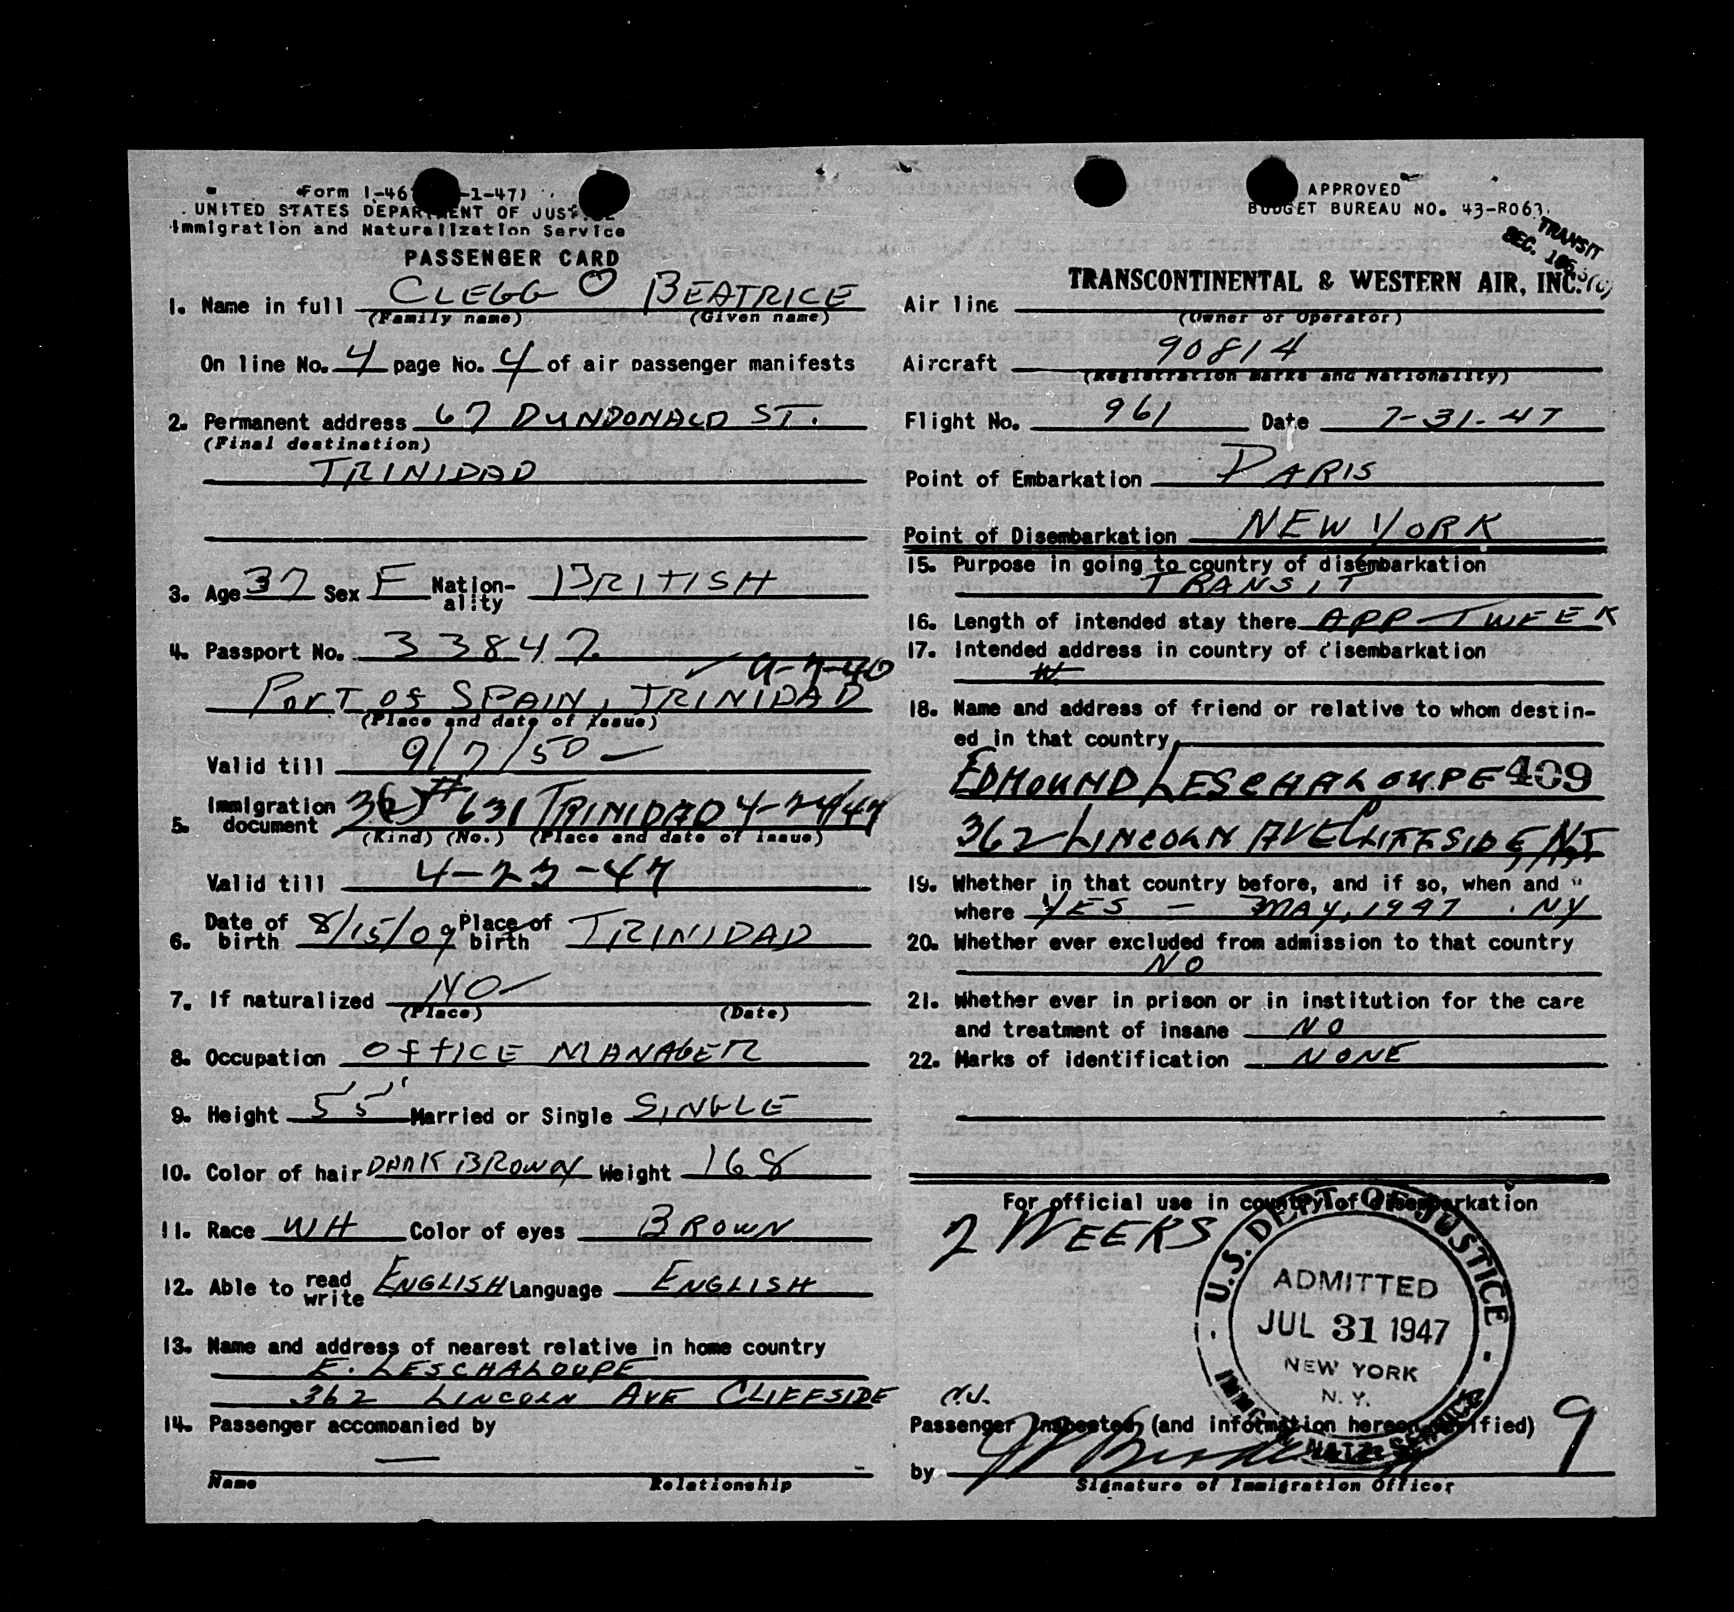 Form I-46 -1-47)
UNITED STATES DEPARTMENT OF JUSTICE
Immigration and Naturalization Service
PASSENGER CARD
1. Name in full CLEGG O BEATRICE
(Family name) (Given name)
On line No. 4 page No. 4 of air passenger manifests
2. Permanent address 67 DUNDONALD ST.
(Final destination)
TRINIDAD
3. Age 37 Sex F Nation-ality BRITISH
4. Passport No. 33847
9-7-40
PORT OF SPAIN, TRINIDAD
(Place and date of issue)
Valid till 9/7/50
5. Immigration document 3(2) #631 TRINIDAD 4-24/47
(Kind) (No.) (Place and date of issue)
Valid till 4-23-47
6. Date of birth 8/15/09 Place of birth TRINIDAD
7. If naturalized NO
(Place) (Date)
8. Occupation OFFICE MANAGER
9. Height 5'5" Married or Single SINGLE
10. Color of hair DARK BROWN Weight 168
11. Race WH Color of eyes BROWN
12. Able to read write ENGLISH Language ENGLISH
13. Name and address of nearest relative in home country
E. LESCHALOUPE
362 LINCOLN AVE CLIFFSIDE N.J.
14. Passenger accompanied by
—
Name Relationship
APPROVED
BUDGET BUREAU NO. 43-R063.
TRANSIT
SEC.
TRANSCONTINENTAL & WESTERN AIR, INC.
Air line
(Owner or Operator)
Aircraft 90814
(Registration marks and Nationality)
Flight No. 961 Date 7-31-47
Point of Embarkation PARIS
Point of Disembarkation NEW YORK
15. Purpose in going to country of disembarkation
TRANSIT
16. Length of intended stay there APP - 1 WEEK
17. Intended address in country of disembarkation
18. Name and address of friend or relative to whom destin-
ed in that country
EDMOUND LESCHALOUPE 409
362 LINCOLN AVE CLIFFSIDE, NJ
19. Whether in that country before, and if so, when and
where YES - MAY, 1947 . NY
20. Whether ever excluded from admission to that country
NO
21. Whether ever in prison or in institution for the care
and treatment of insane NO
22. Marks of identification NONE
For official use in country of disembarkation
2 WEEKS
U.S. DEPT. OF JUSTICE
ADMITTED
JUL 31 1947
NEW YORK
N.Y.
Passenger inspected (and information hereon verified)
9
by
Signature of Immigration Officer